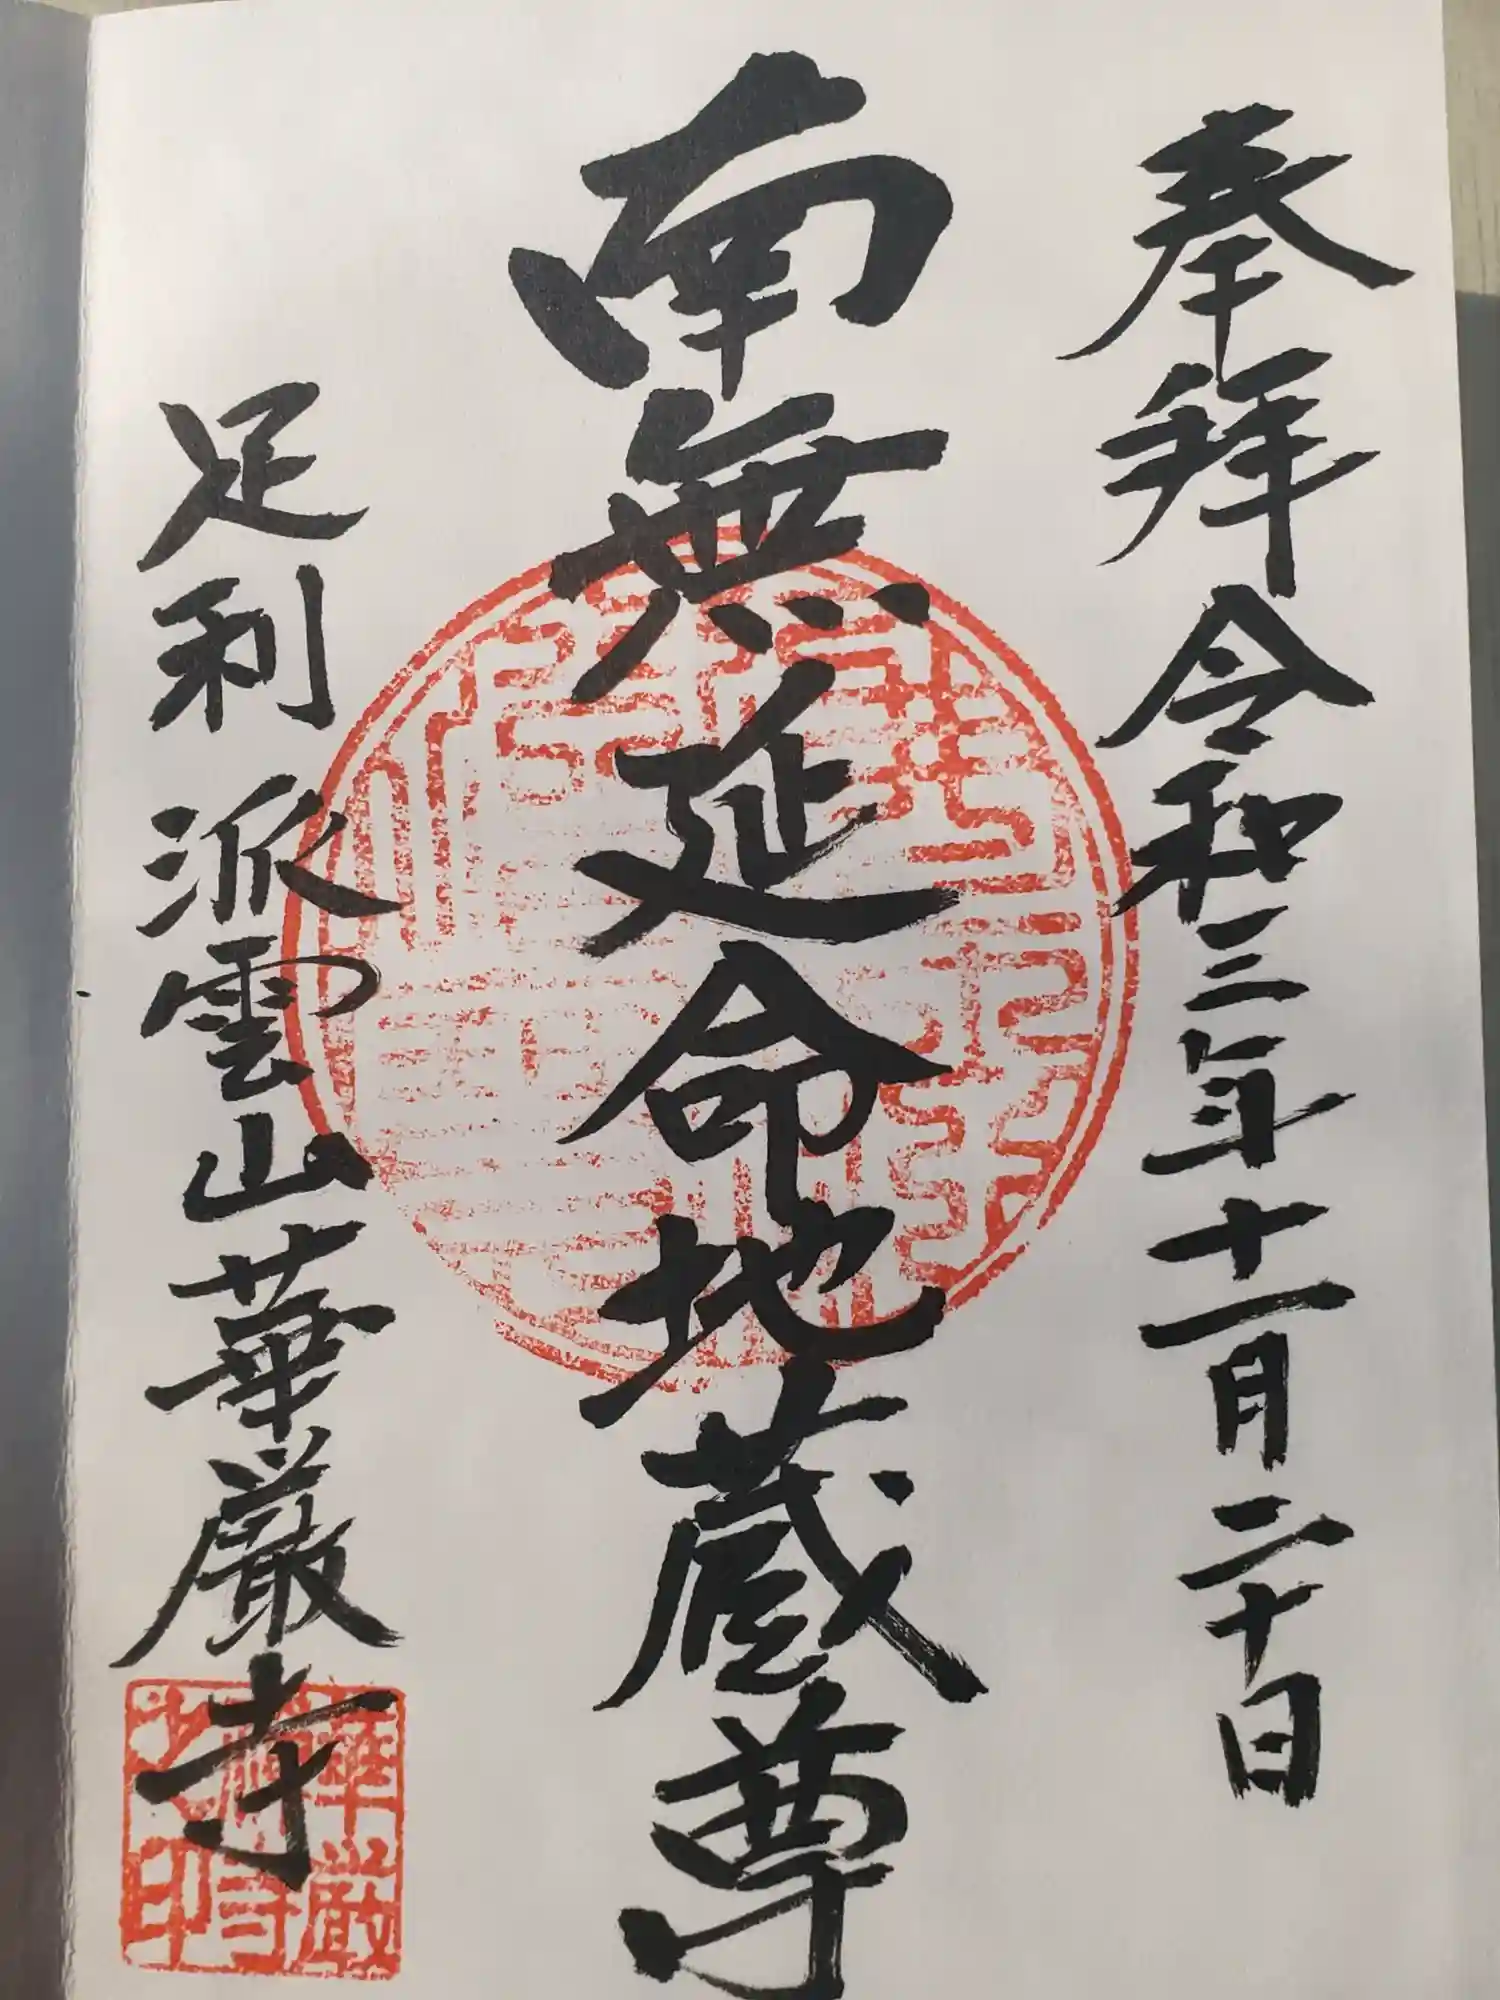 奉拜 令和三年十一月二十日
南無延命地蔵尊
足利 派雲山華厳寺
華厳
寺
之印